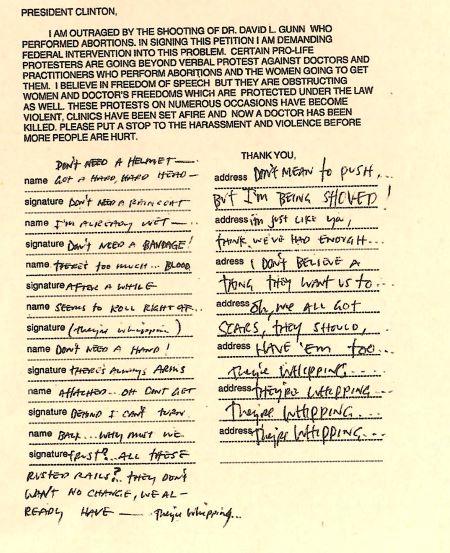 PRESIDENT CLINTON,
I AM OUTRAGED BY THE SHOOTING OF DR. DAVID L. GUNN WHO
PERFORMED ABORTIONS. IN SIGNING THIS PETITION I AM DEMANDING
FEDERAL INTERVENTION INTO THIS PROBLEM. CERTAIN PRO-LIFE
PROTESTERS ARE GOING BEYOND VERBAL PROTEST AGAINST DOCTORS AND
PRACTITIONERS WHO PERFORM ABORITIONS AND THE WOMEN GOING TO GET
THEM. I BELIEVE IN FREEDOM OF SPEECH BUT THEY ARE OBSTRUCTING
WOMEN AND DOCTOR'S FREEDOMS WHICH ARE PROTECTED UNDER THE LAW
AS WELL. THESE PROTESTS ON NUMEROUS OCCASIONS HAVE BECOME
VIOLENT, CLINICS HAVE BEEN SET AFIRE AND NOW A DOCTOR HAS BEEN
KILLED. PLEASE PUT A STOP TO THE HARASSMENT AND VIOLENCE BEFORE
MORE PEOPLE ARE HURT.
THANK YOU,
DON'T NEED A HELMET—
name GOT A HARD, HARD HEAD—
signature DON'T NEED A RAINCOAT
name I'M ALREADY WET—
signature DON'T NEED A BANDAGE!
name THERE'S TOO MUCH... BLOOD
signature AFTER A WHILE
name SEEMS TO ROLL RIGHT OFF...
signature (They're whippin)
name DON'T NEED A HAND!
signature THERE'S ALWAYS ARMS
name ATTACHED... OH DON'T GET
signature BEHIND I CAN'T TURN
name BACK... WHY MUST WE
signature TRUST?.. ALL THESE
RUSTED RAILS?.. THEY DON'T
WANT NO CHANGE, WE AL-
READY HAVE — They're whipping...
address DON'T MEAN TO PUSH,...
BUT I'M BEING SHOVED!
address i'm JUST LIKE YOU,
THINK WE'VE HAD ENOUGH...
adress I DON'T BELIEVE A
THING THEY WANT US TO...
address Oh, WE ALL GOT
SCARS, THEY SHOULD,...
address HAVE 'EM TOO...
They're WHIPPING...
address THEY'RE WHIPPING...
They're WHIPPING...
address They're WHIPPING...